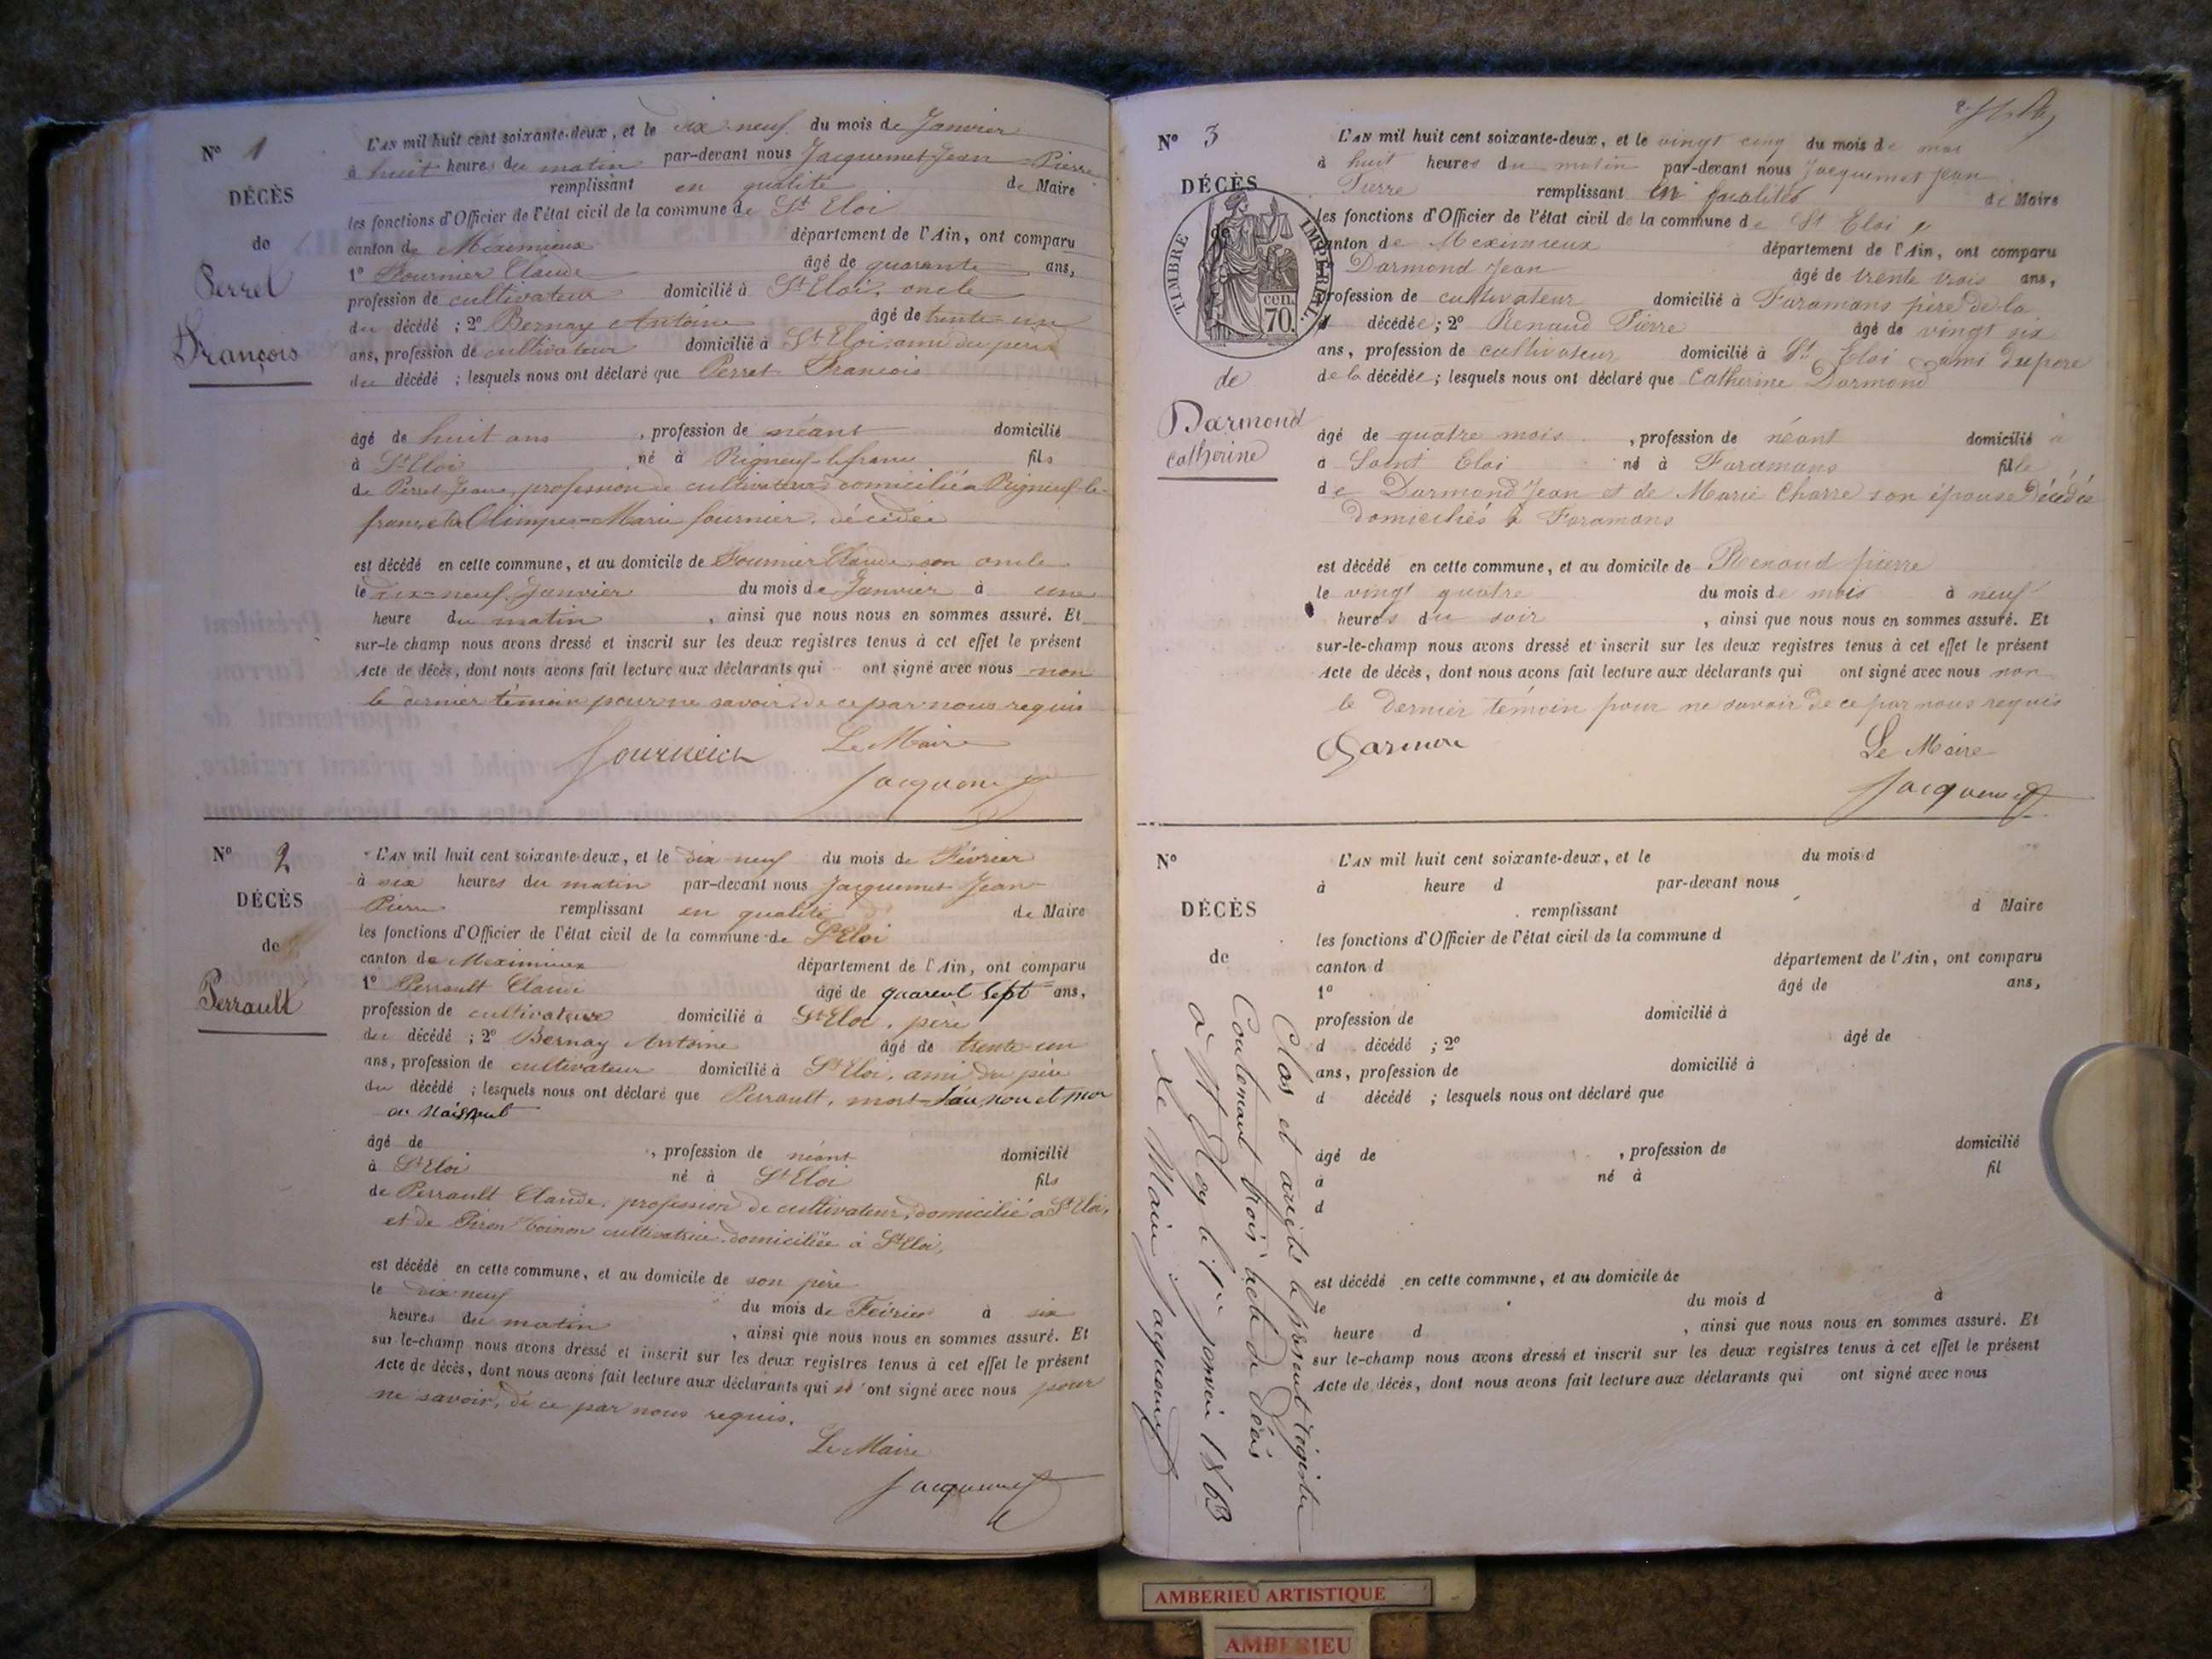 N° 1
DÉCÈS
de
Perret
François
L'AN mil huit cent soixante-deux, et le dix-neuf du mois de Janvier
à huit heures du matin par-devant nous Jacquemet Jean Pierre
remplissant en qualité de Maire
les fonctions d'Officier de l'état civil de la commune de St Eloi
canton de Méximieux département de l'Ain, ont comparu
1° Fournier Claude âgé de quarante ans,
profession de cultivateur domicilié à St Eloi, oncle
du décédé ; 2° Bernay Antoine âgé de trente-un
ans, profession de cultivateur domicilié à St Eloi, ami du père
du décédé ; lesquels nous ont déclaré que Perret François
âgé de huit ans, profession de néant domicilié
à St Eloi né à Rigneux-le-franc fils
de Perret Jean, profession de cultivateur domicilié à Rigneux-le-
franc, et de Olimpe-Marie fournier, décédée
est décédé en cette commune, et au domicile de Fournier Claude son oncle
le dix-neuf Janvier du mois de Janvier à une
heure du matin, ainsi que nous nous en sommes assuré. Et
sur-le champ nous avons dressé et inscrit sur les deux registres tenus à cet effet le présent
Acte de décès, dont nous avons fait lecture aux déclarants qui ont signé avec nous non
le dernier témoin pour ne savoir, de ce par nous requis
Le Maire
Jacquemet
N° 2
DÉCÈS
de
Perrault
L'AN mil huit cent soixante-deux, et le dix-neuf du mois de Février
à six heures du matin par-devant nous Jacquemet Jean
Pierre remplissant en qualité de Maire
les fonctions d'Officier de l'état civil de la commune de St Eloi
canton de Meximieux département de l'Ain, ont comparu
1° Perrault Claude âgé de quarent sept ans,
profession de cultivateur domicilié à St Eloi, père
du décédé ; 2° Bernay Antoine âgé de trente-un
ans, profession de cultivateur domicilié à St Eloi, ami du père
du décédé ; lesquels nous ont déclaré que Perrault, mort
âgé de , profession de néant domicilié
à St Eloi né à St Eloi fils
de Perrault Claude, profession de cultivateur, domicilié à St Eloi,
et de Piron Toinon cultivatrice domiciliée à St Eloi,
est décédé en cette commune, et au domicile de son père
le dix neuf du mois de Février à six
heures du matin, ainsi que nous nous en sommes assuré. Et
sur le-champ nous avons dressé et inscrit sur les deux registres tenus à cet effet le présent
Acte de décès, dont nous avons fait lecture aux déclarants qui n'ont signé avec nous pour
ne savoir, de ce par nous requis.
Le Maire
Jacquemet
N° 3
DÉCÈS
de
TIMBRE IMPÉRIAL
70 cen.
de
Darmond
catherine
L'AN mil huit cent soixante-deux, et le vingt cinq du mois de mai
à huit heures du matin par-devant nous Jacquemet Jean
Pierre remplissant en qualités de Maire
les fonctions d'Officier de l'état civil de la commune de St Eloi
canton de Meximieux département de l'Ain, ont comparu
Darmond Jean âgé de trente trois ans,
profession de cultivateur domicilié à Faramans père de la
décédée ; 2° Renaud Pierre âgé de vingt six
ans, profession de cultivateur domicilié à St Eloi ami du père
de la décédée ; lesquels nous ont déclaré que Catherine Darmond
âgé de quatre mois, profession de néant domicilié à
à Saint Eloi né à Faramans fille
de Darmond Jean et de Marie Charre son épouse Décédée
Domiciliés à Faramans
est décédé en cette commune, et au domicile de Renaud pierre
le vingt quatre du mois de mai à neuf
heures du soir, ainsi que nous nous en sommes assuré. Et
sur-le-champ nous avons dressé et inscrit sur les deux registres tenus à cet effet le présent
Acte de décès, dont nous avons fait lecture aux déclarants qui ont signé avec nous non
le Dernier témoin pour ne savoir de ce par nous requis
Le Maire
Jacquemet
N°
DÉCÈS
de
L'AN mil huit cent soixante-deux, et le du mois d
à heure d par-devant nous
remplissant d Maire
les fonctions d'Officier de l'état civil de la commune d
canton d département de l'Ain, ont comparu
1° âgé de ans,
profession de domicilié à
d décédé ; 2° âgé de
ans, profession de domicilié à
d décédé ; lesquels nous ont déclaré que
âgé de , profession de domicilié
à né à fil
d
est décédé en cette commune, et au domicile de
le du mois d à
heure d , ainsi que nous nous en sommes assuré. Et
sur le-champ nous avons dressé et inscrit sur les deux registres tenus à cet effet le présent
Acte de décès, dont nous avons fait lecture aux déclarants qui ont signé avec nous
Clos et arrêté le présent régistre
Contenant trois acte de décès
à St Eloy le 1er janvier 1863
Le Maire Jacquemet
AMBERIEU ARTISTIQUE
AMBERIEU